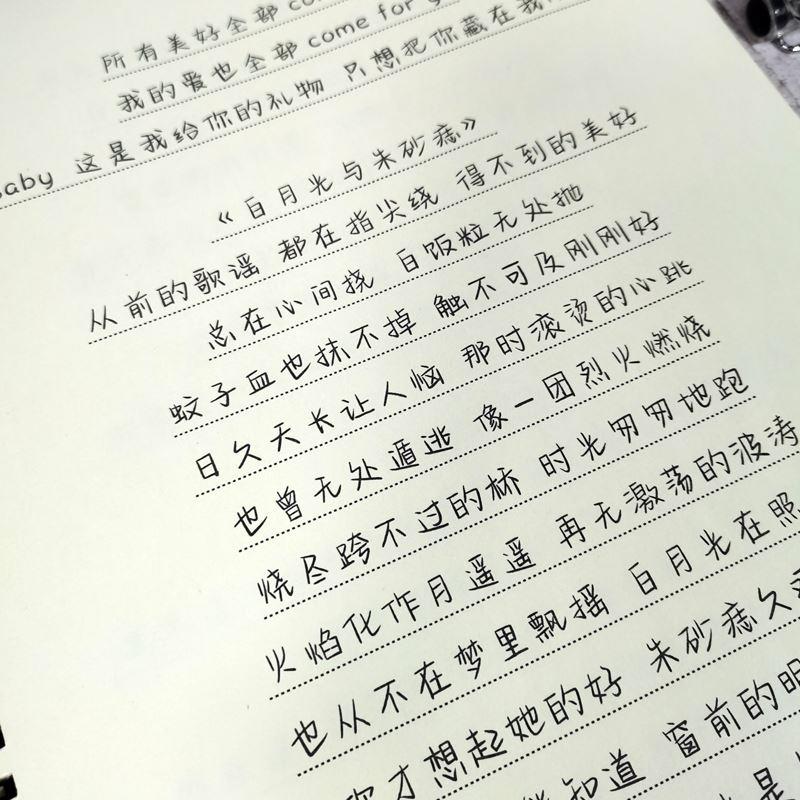 所有美好全部 co
我的爱也全部 come for
baby 这是我给你的礼物 只想把你藏在我
《白月光与朱砂痣》
从前的歌谣 都在指尖绕 得不到的美好
总在心间挠 白饭粒无处抛
蚊子血也抹不掉 触不可及刚刚好
日久天长让人恼 那时滚烫的心跳
也曾无处遁逃 像一团烈火燃烧
烧尽跨不过的桥 时光匆匆地跑
火焰化作月遥遥 再无激荡的波涛
也从不在梦里飘摇 白月光在照
你才想起她的好 朱砂痣久
知道 窗前的明
是